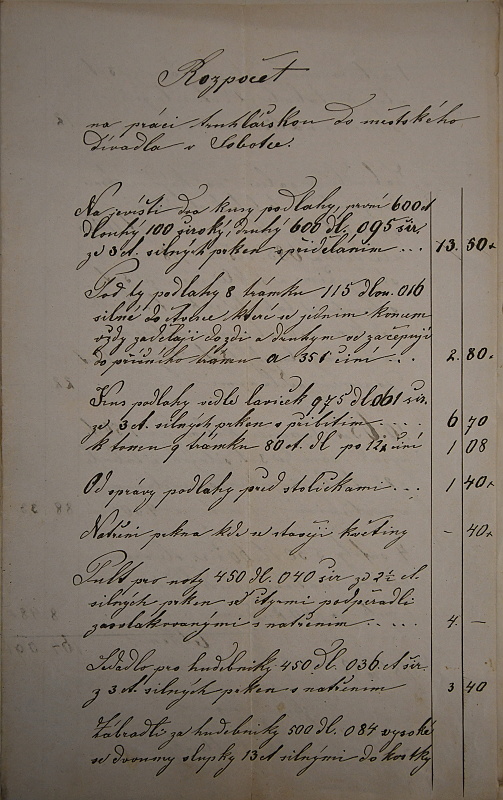 Rozpočet
na práci truhlářskou do městského
divadla v Sobotce.
Na jevišti dva kusy podlahy, první 600 ct
dlouhý 100 široký, druhý 600 dl. 095 šir.
ze 3 ct. silných prken s přiděláním ... 13. 50
Pod ty podlahy 8 trámku 115 dlou. 016
silné do
vždy zadělají do zdi a druhým
do příčního trámu a 35 činí .. 2. 80
Kus podlahy vedle laviček 975 dl 061 šir.
ze 3 ct. silných prken s přibitím .... 6 70
k tomu 9 trámku 80 ct. dl po 12 činí 1 08
Od správy podlahy před stoličkami ... 1 40
Natření prkna kde se stavějí květiny - 40
Pult pro noty 450 dl. 040 šir ze 2½ ct.
silných prken se čtyrmi podpěradli
s natřením ..... 4. —
Sedadlo pro hudebníky 450 dl. 036 ct šir.
z 3 ct. silných prken s natřením 3 40
Zábradlí za hudebníky 500 dl. 084 vysoké
se dvoumy slupky 13 ct silnými do kostky